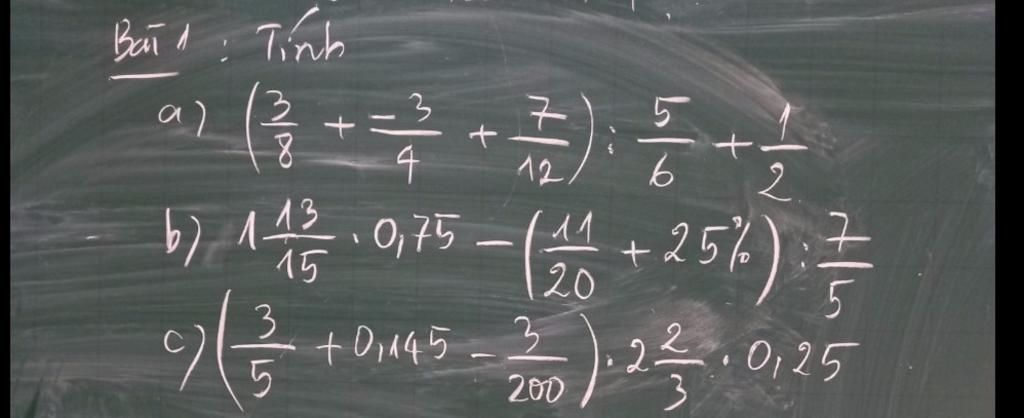 Bài 1 : Tính
a) (3/8 + -3/4 + 7/12) : 5/6 + 1/2
b) 1 13/15 . 0,75 - (11/20 + 25%) : 7/5
c) (3/5 + 0,145 - 3/200) . 2 2/3 . 0,25